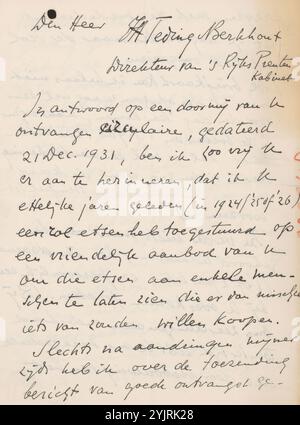 Den Heer JH Teding v Berkhout
Direkteur van 's Ryks Prenten
Kabinet
In antwoord op een door mij van U
ontvangen circulaire, gedateerd
21 Dec. 1931, ben ik zoo vrij U
er aan te herinneren, dat ik U
ettelijke jaren geleden (in 1924/'25 of '26)
een rol etsen heb toegestuurd op
een vriendelijk aanbod van U
om die etsen aan enkele men-
schen te laten zien die er dan misschien
iets van zouden willen koopen.
Slechts na aandringen mijner-
zijds heb ik over de toezending
bericht van goede ontvangst ge-
alamy
Image ID: 2YJRK28
www.alamy.com